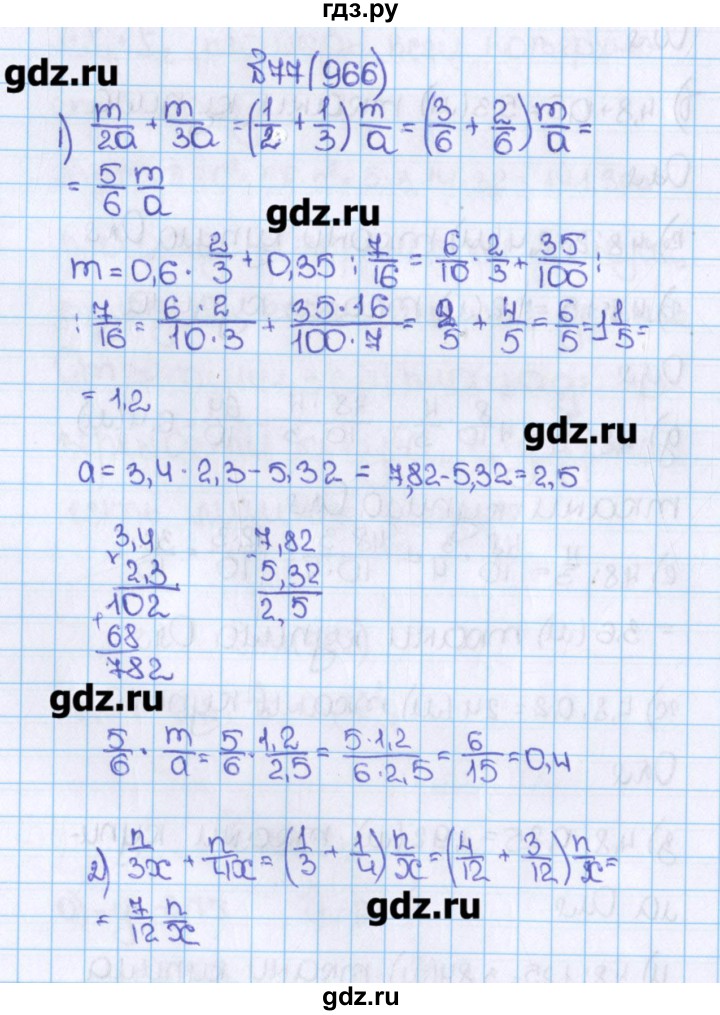 гдз.ру
gdz.ru
877(966)
1) m/2a + m/3a = (1/2 + 1/3) m/a = (3/6 + 2/6) m/a =
= 5/6 m/a
gdz.ru
m = 0,6 · 2/3 + 0,35 : 7/16 = 6/10 · 2/3 + 35/100 :
: 7/16 = 6·2/10·3 + 35·16/100·7 = 2/5 + 4/5 = 6/5 = 1 1/5 =
= 1,2
gdz.ru
a = 3,4 · 2,3 - 5,32 = 7,82 - 5,32 = 2,5
3,4 7,82
× 2,3 - 5,32
102 2,5
+ 68
782
gdz.ru
5/6 · m/a = 5/6 · 1,2/2,5 = 5·1,2/6·2,5 = 6/15 = 0,4
2) n/3x + n/4x = (1/3 + 1/4) n/x = (4/12 + 3/12) n/x =
= 7/12 n/x
gdz.ru
gdz.ru